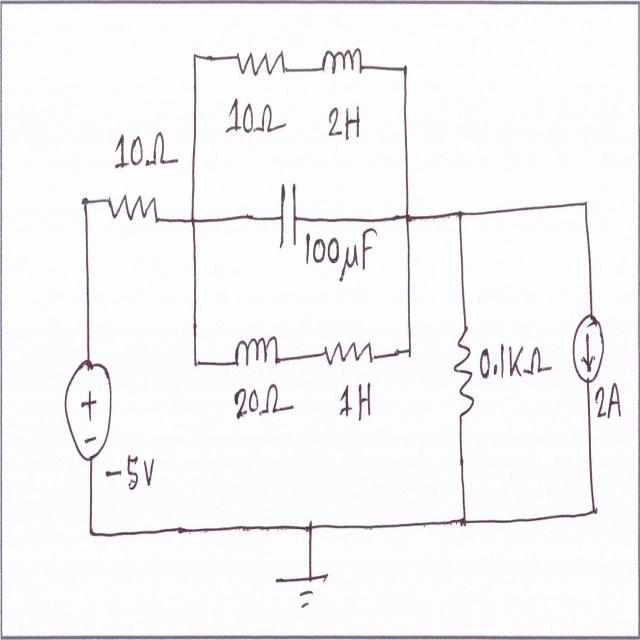 10Ω 2H
10Ω
100μF
20Ω 1H
0.1KΩ
2A
+
-
-5V